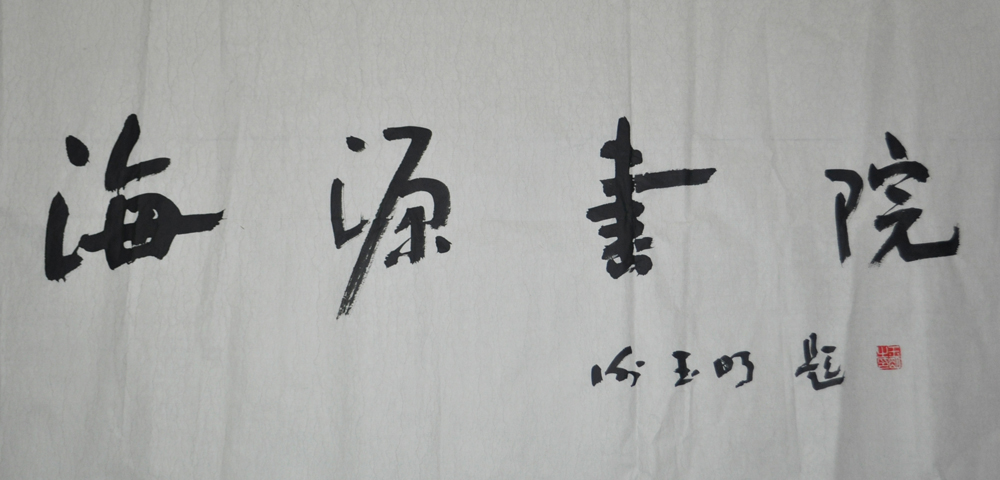 海源書院
玉明 題